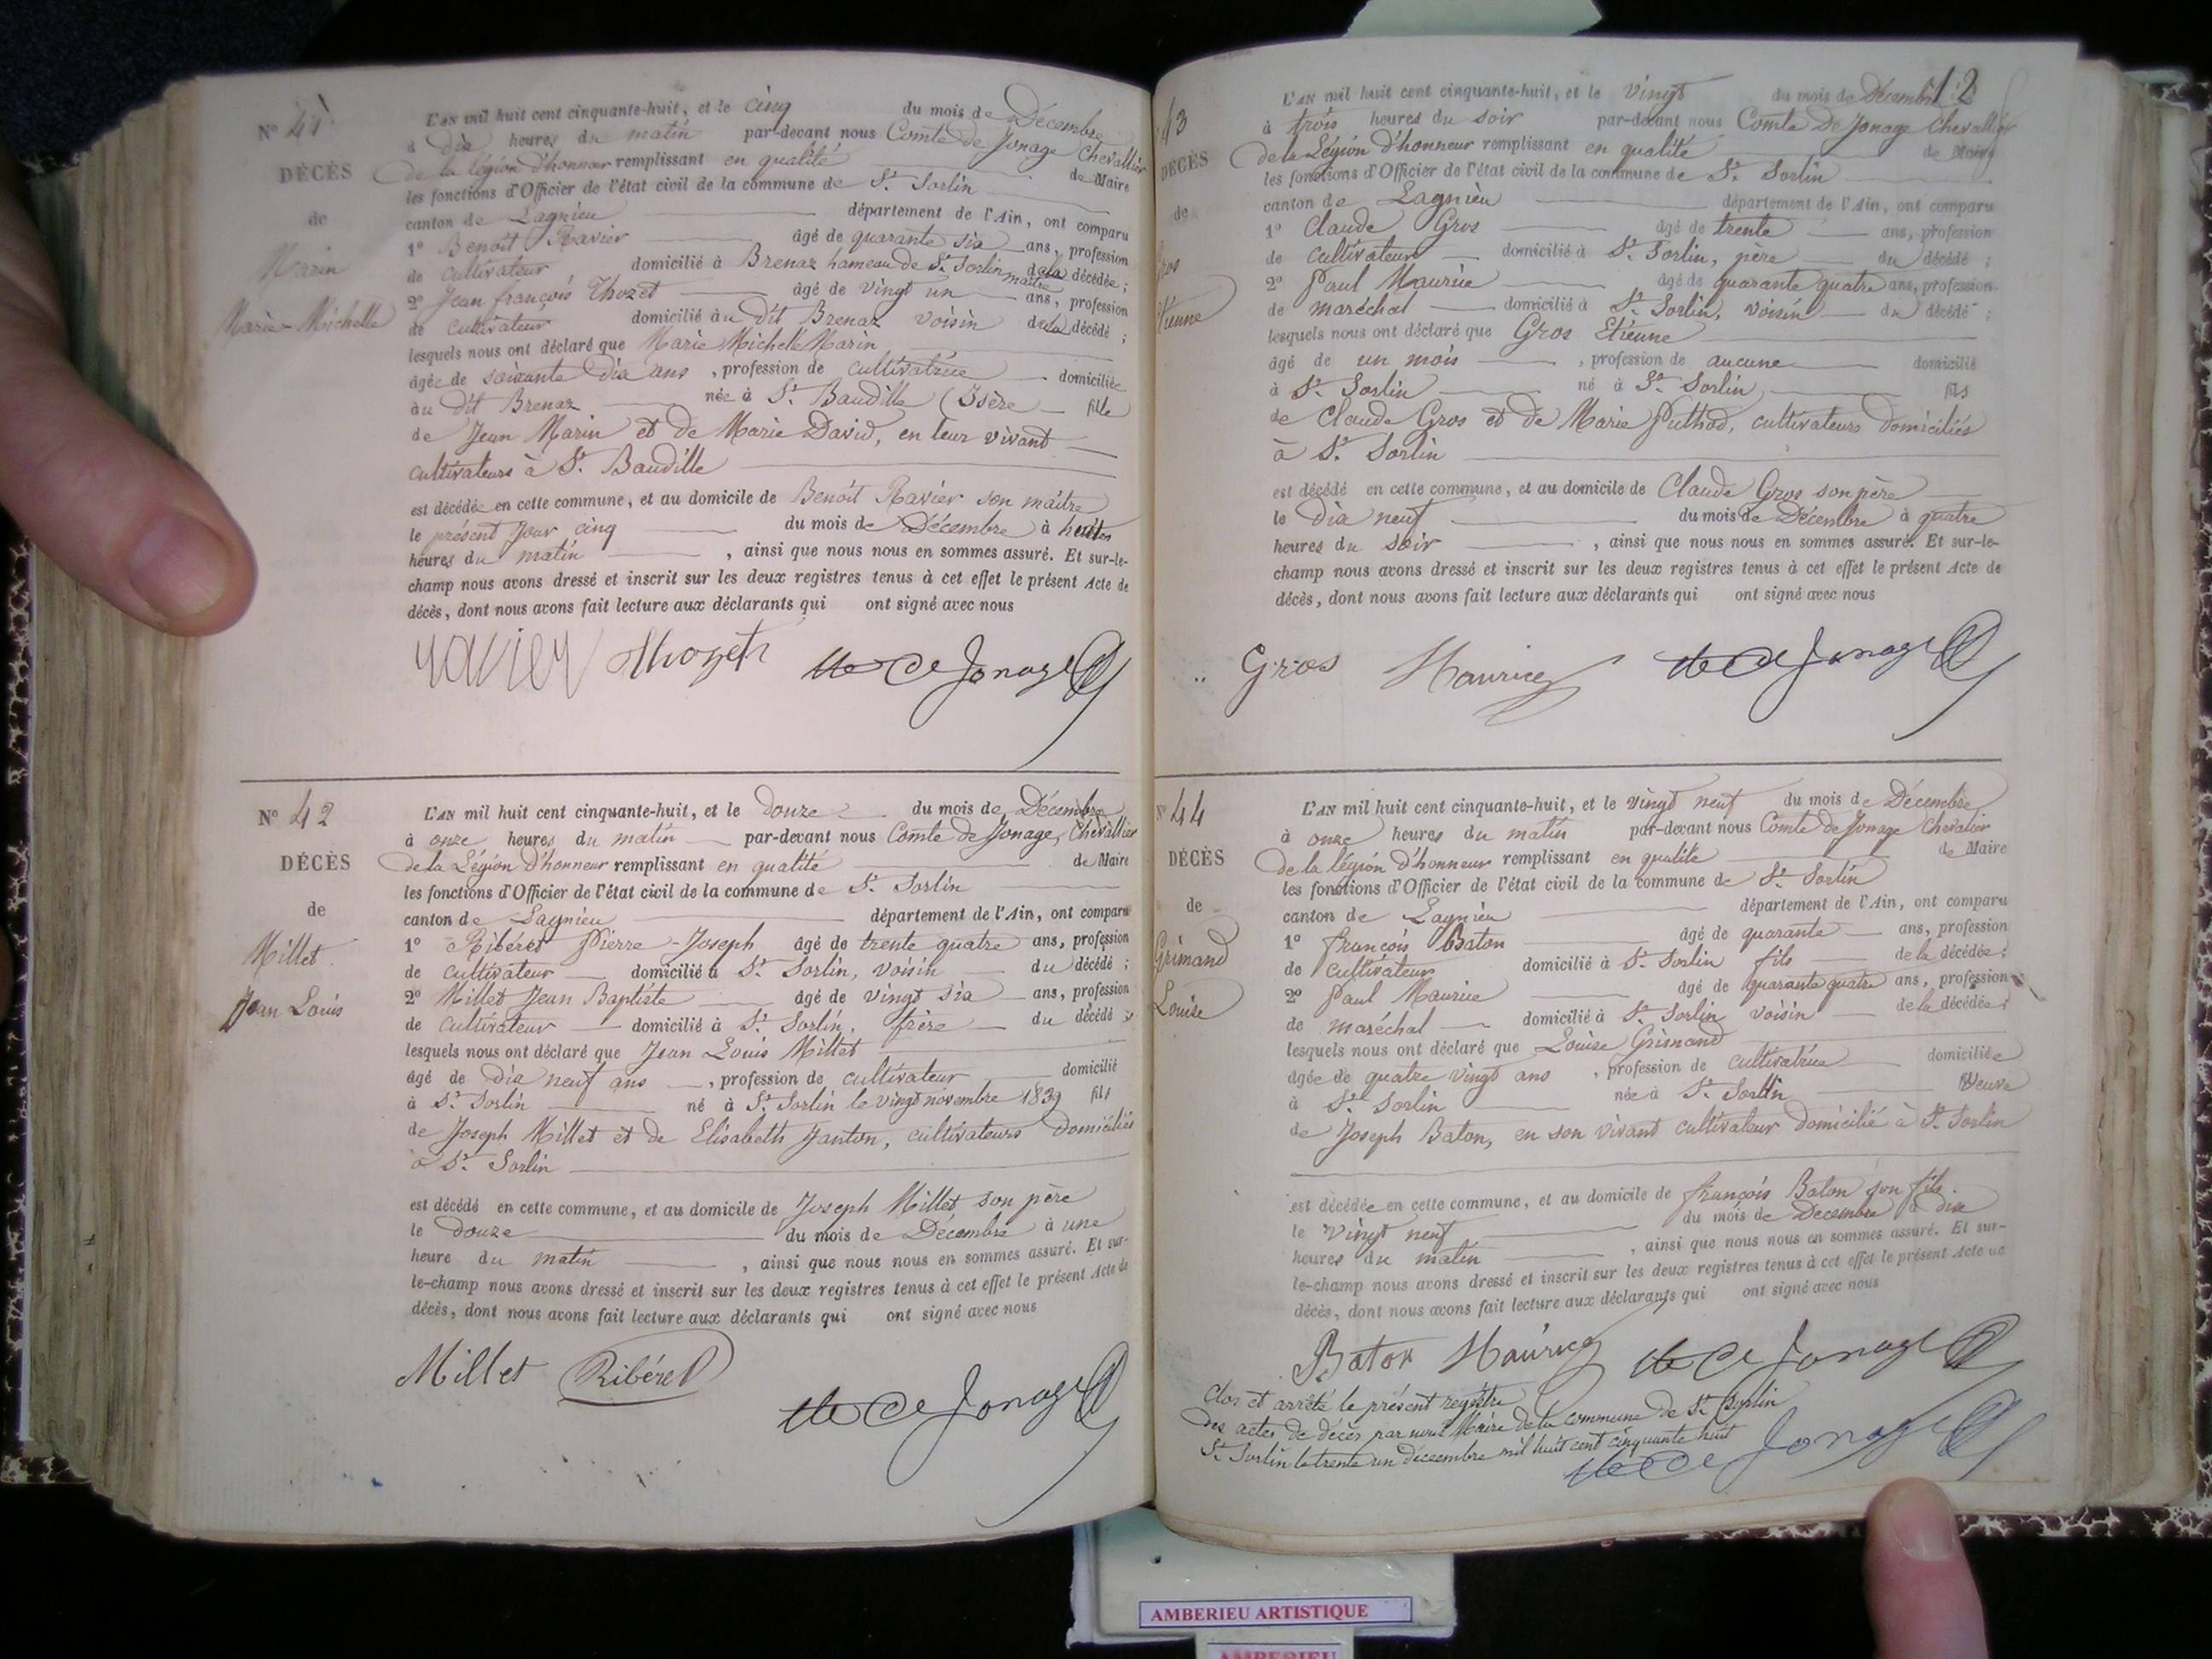 N° 41
DÉCÈS
de
Marin
Marie-Michelle
L'AN mil huit cent cinquante-huit, et le cinq du mois de Décembre
à dix heures du matin par-devant nous Comte de Jonage Chevallier
de la légion d'honneur remplissant en qualité de Maire
les fonctions d'Officier de l'état civil de la commune de St. Sorlin
canton de Lagnieu département de l'Ain, ont comparu
1° Benoit Ravier âgé de quarante six ans, profession
de cultivateur domicilié à Brenaz hameau de St. Sorlin maître de la décédée ;
2° Jean françois Thozet âgé de vingt un ans, profession
de cultivateur domicilié au dit Brenaz voisin de la décédé ;
lesquels nous ont déclaré que Marie Michelle Marin
âgée de soixante dix ans , profession de cultivatrice domiciliée
au dit Brenaz née à St. Baudille (Isère fille
de Jean Marin et de Marie David, en leur vivant
cultivateurs à St. Baudille
est décédée en cette commune, et au domicile de Benoit Ravier son maître
le présent jour cinq du mois de Décembre à huit
heures du matin , ainsi que nous nous en sommes assuré. Et sur-le-
champ nous avons dressé et inscrit sur les deux registres tenus à cet effet le présent Acte de
décès, dont nous avons fait lecture aux déclarants qui ont signé avec nous
ravier Thozet de Jonage
N° 42
DÉCÈS
de
Millet
Jean Louis
L'AN mil huit cent cinquante-huit, et le douze du mois de Décembre
à onze heures du matin par-devant nous Comte de Jonage, Chevallier
de la Légion d'honneur remplissant en qualité de Maire
les fonctions d'Officier de l'état civil de la commune de St. Sorlin
canton de Lagnieu département de l'Ain, ont comparu
1° Ribéret Pierre-Joseph âgé de trente quatre ans, profession
de cultivateur domicilié à St. Sorlin, voisin du décédé ;
2° Millet Jean Baptiste âgé de vingt six ans, profession
de cultivateur domicilié à St. Sorlin, frère du décédé ;
lesquels nous ont déclaré que Jean Louis Millet
âgé de dix neuf ans , profession de cultivateur domicilié
à St. Sorlin né à St. Sorlin le vingt novembre 1839 fils
de Joseph Millet et de Elisabeth Janton, cultivateurs domiciliés
à St. Sorlin
est décédé en cette commune, et au domicile de Joseph Millet son père
le douze du mois de Décembre à une
heure du matin , ainsi que nous nous en sommes assuré. Et sur-
le-champ nous avons dressé et inscrit sur les deux registres tenus à cet effet le présent Acte de
décès, dont nous avons fait lecture aux déclarants qui ont signé avec nous
Millet Ribéret
de Jonage
12
43
DÉCÈS
de
Gros
Etienne
L'AN mil huit cent cinquante-huit, et le vingt du mois de Décembre
à trois heures du soir par-devant nous Comte de Jonage Chevallier
de la Légion d'honneur remplissant en qualité de Maire
les fonctions d'Officier de l'état civil de la commune de St. Sorlin
canton de Lagnieu département de l'Ain, ont comparu
1° Claude Gros âgé de trente ans, profession
de cultivateur domicilié à St. Sorlin, père du décédé ;
2° Paul Maurice âgé de quarante quatre ans, profession
de maréchal domicilié à St. Sorlin, voisin du décédé ;
lesquels nous ont déclaré que Gros Etienne
âgé de un mois , profession de aucune domicilié
à St. Sorlin né à St. Sorlin fils
de Claude Gros et de Marie Puthod, cultivateurs domiciliés
à St. Sorlin
est décédé en cette commune, et au domicile de Claude Gros son père
le dix neuf du mois de Décembre à quatre
heures du soir , ainsi que nous nous en sommes assuré. Et sur-le-
champ nous avons dressé et inscrit sur les deux registres tenus à cet effet le présent Acte de
décès, dont nous avons fait lecture aux déclarants qui ont signé avec nous
Gros Maurice de Jonage
N° 44
DÉCÈS
de
Grimand
Louise
L'AN mil huit cent cinquante-huit, et le vingt neuf du mois de Décembre
à onze heures du matin par-devant nous Comte de Jonage Chevalier
de la légion d'honneur remplissant en qualité de Maire
les fonctions d'Officier de l'état civil de la commune de St. Sorlin
canton de Lagnieu département de l'Ain, ont comparu
1° françois Baton âgé de quarante ans, profession
de cultivateur domicilié à St. Sorlin fils de la décédée ;
2° Paul Maurice âgé de quarante quatre ans, profession
de maréchal domicilié à St. Sorlin voisin de la décédée ;
lesquels nous ont déclaré que Louise Grimand
âgée de quatre vingt ans , profession de cultivatrice domiciliée
à St. Sorlin née à St. Sorlin Veuve
de Joseph Baton, en son vivant cultivateur domicilié à St. Sorlin
est décédée en cette commune, et au domicile de françois Baton son fils
le vingt neuf du mois de Décembre à dix
heures du matin , ainsi que nous nous en sommes assuré. Et sur-
le-champ nous avons dressé et inscrit sur les deux registres tenus à cet effet le présent Acte de
décès, dont nous avons fait lecture aux déclarants qui ont signé avec nous
Baton Maurice de Jonage
Clos et arrêté le présent registre
des actes de décès par nous Maire de la commune de St. Sorlin
St. Sorlin le trente un décembre mil huit cent cinquante huit
de Jonage
AMBERIEU ARTISTIQUE
AMBERIEU